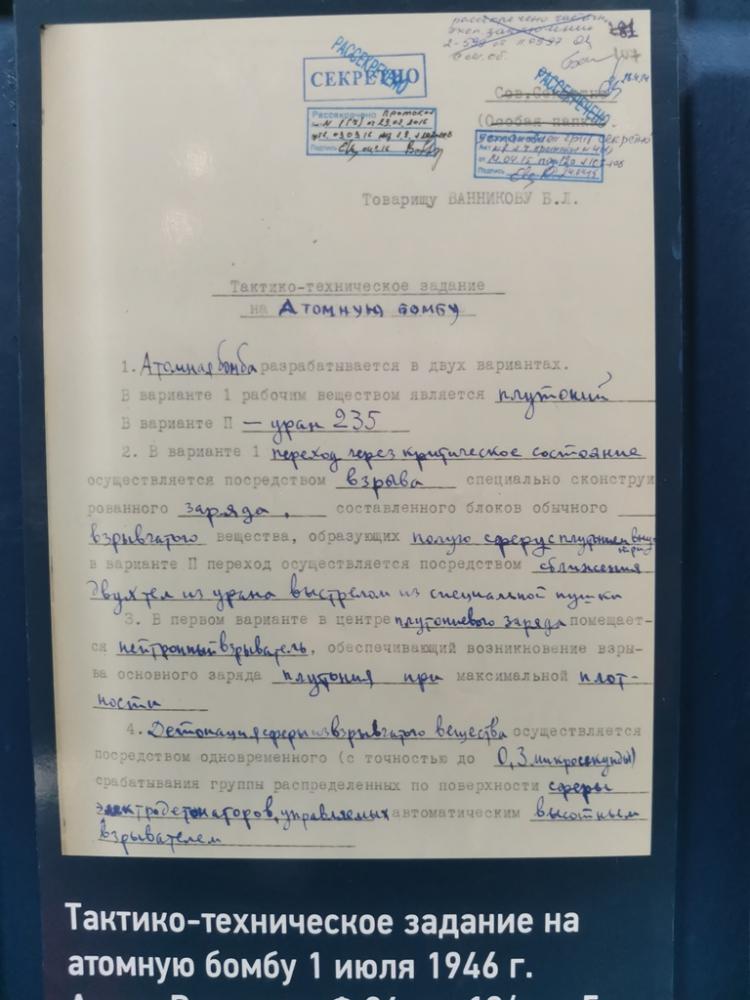 рассекречено частично
81
РАССЕКРЕЧЕНО
СЕКРЕТНО
Рассекречено протокол
Подпись
РАССЕКРЕЧЕНО
Сов.Секретно
(Особая папка)
Подпись
Товарищу ВАННИКОВУ Б.Л.
Тактико-техническое задание
на Атомную бомбу
1. Атомная бомба разрабатывается в двух вариантах.
В варианте 1 рабочим веществом является плутоний
В варианте П – уран 235
2. В варианте 1 переход через критическое состояние
осуществляется посредством взрыва специально сконструи
рованного заряда, составленного блоков обычного
взрывчатого вещества, образующих полую сферу с плутонием внутри
в варианте П переход осуществляется посредством сближения
двух тел из урана выстрелом из специальной пушки
3. В первом варианте в центре плутониевого заряда помещает-
ся нейтронный взрыватель, обеспечивающий возникновение взры-
ва основного заряда плутония при максимальной плот-
ности
4. Детонация сферы из взрывчатого вещества осуществляется
посредством одновременного (с точностью до 0,3 микросекунды)
срабатывания группы распределенных по поверхности сферы
электродетонаторов, управляемых автоматическим высотным
взрывателем
Тактико-техническое задание на
атомную бомбу 1 июля 1946 г.